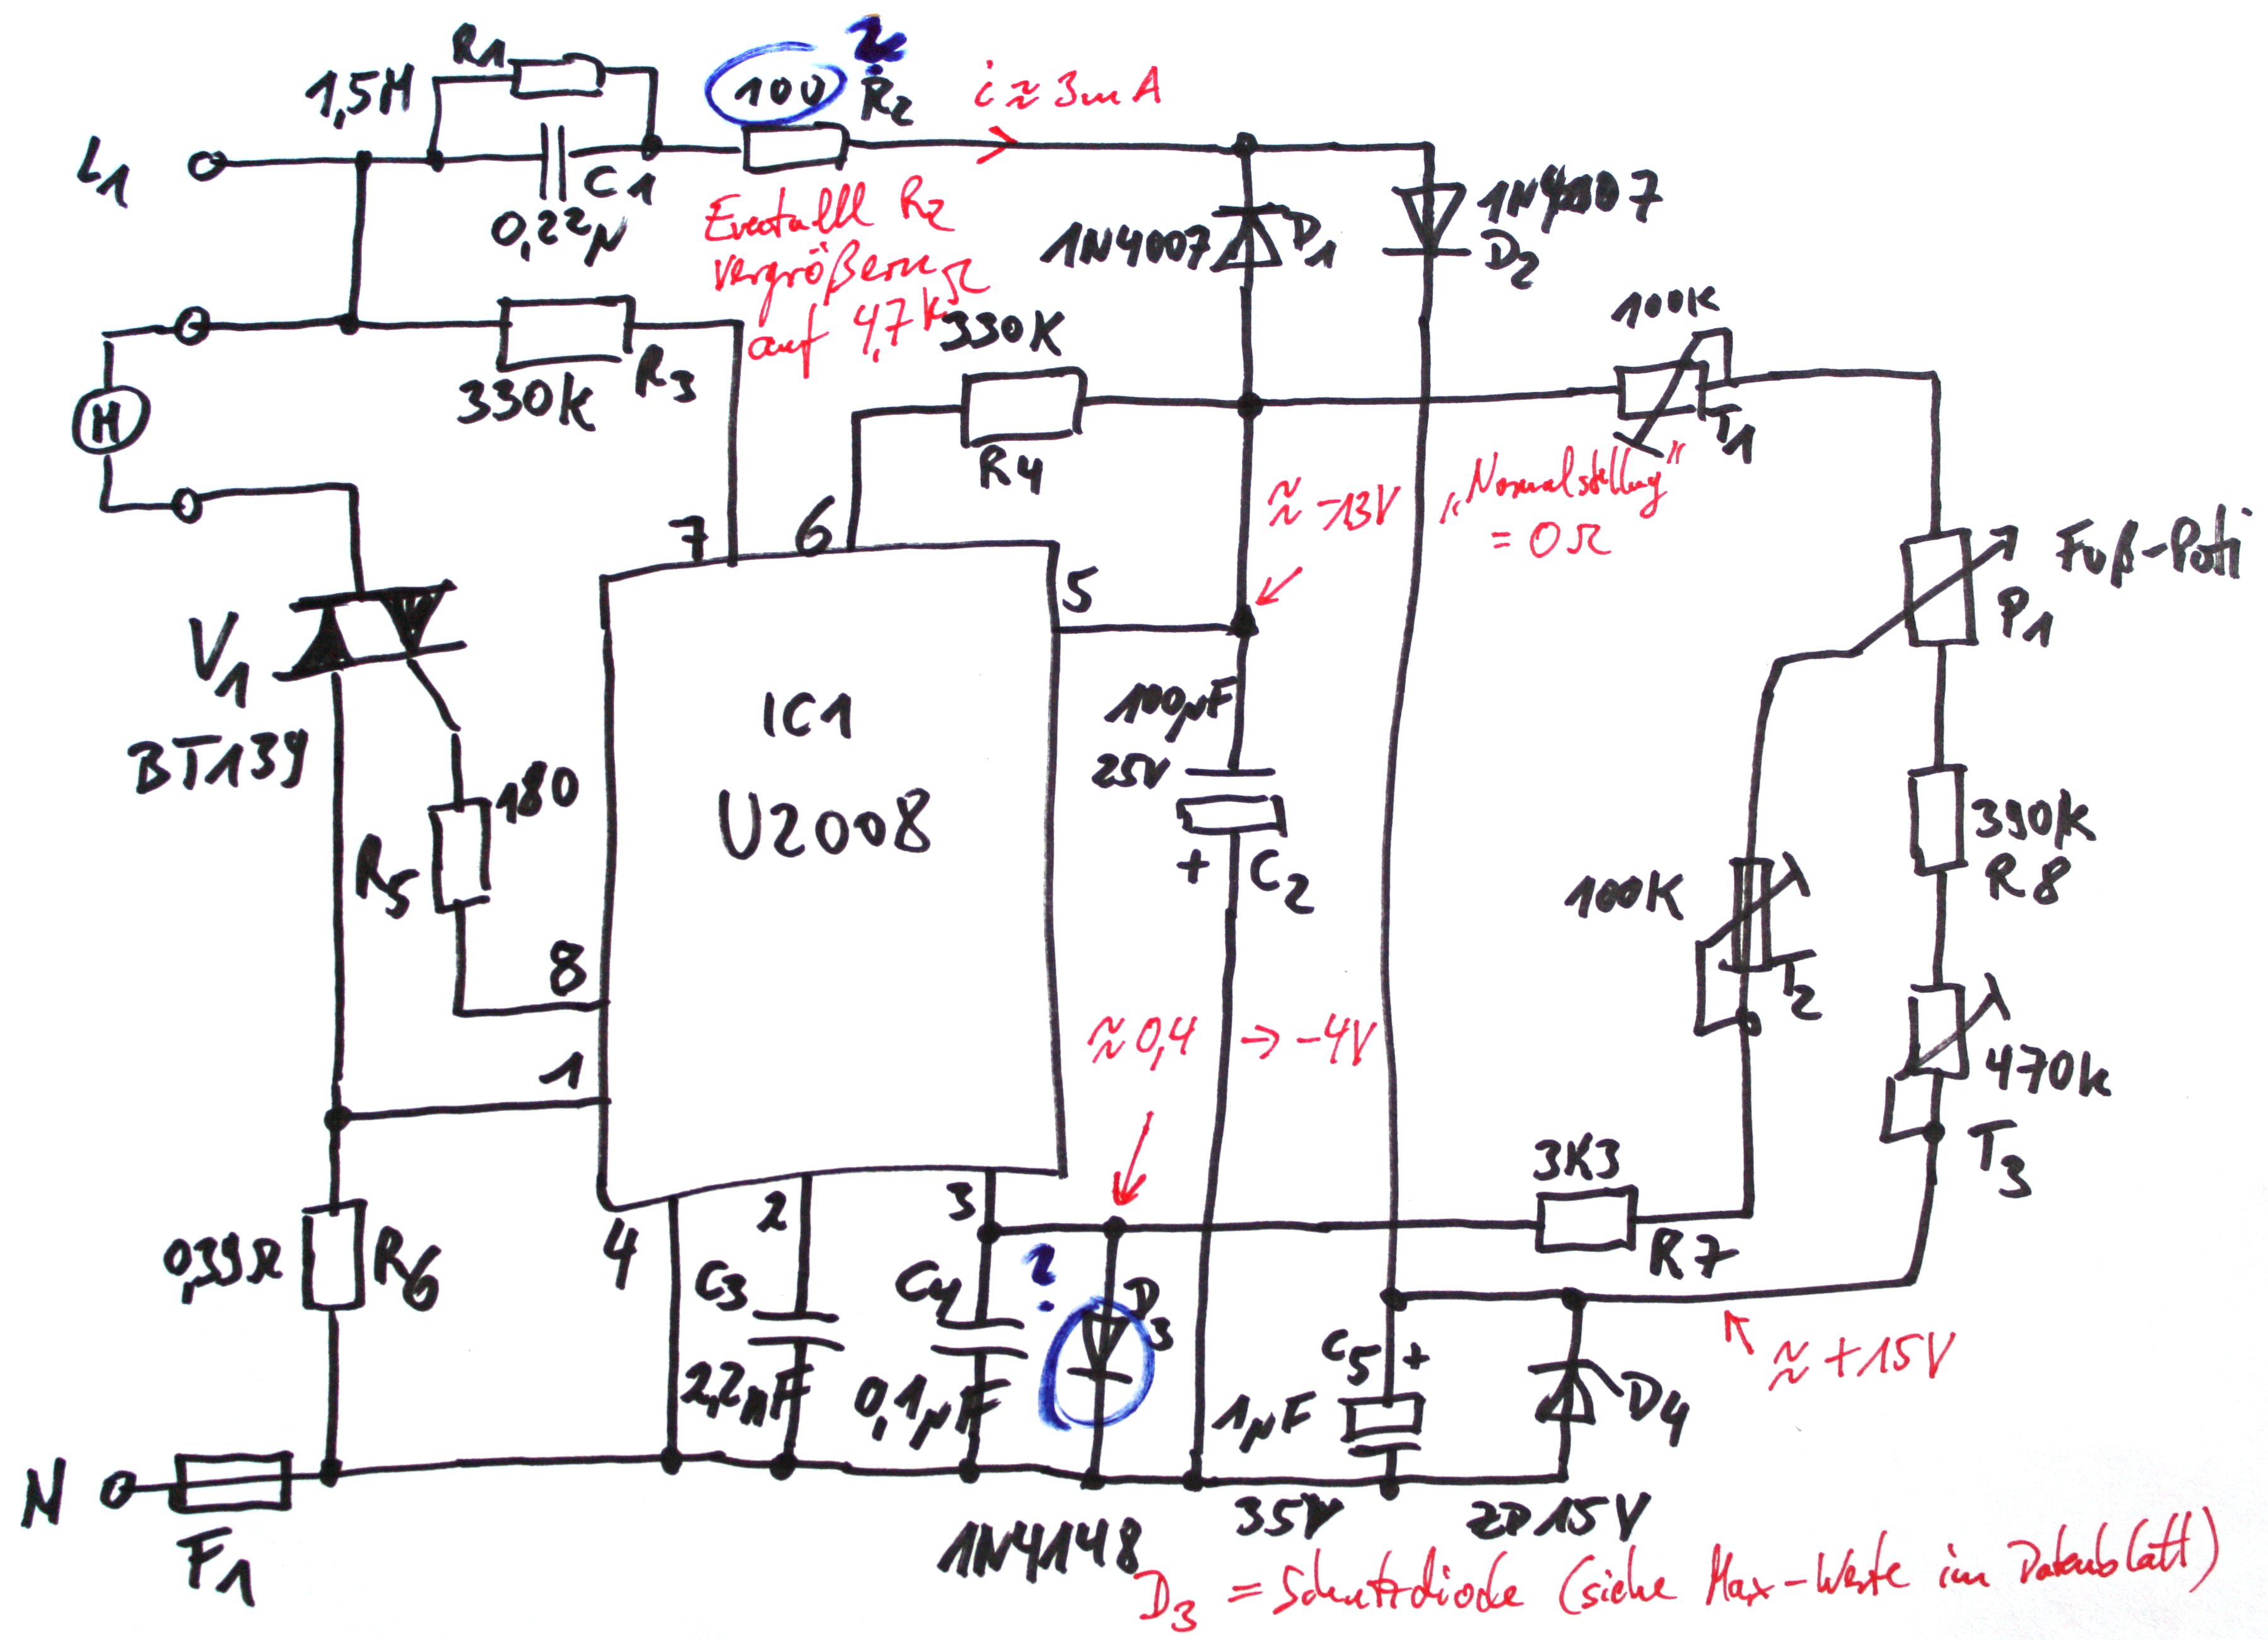 R1
1,5M
100
?
R2
i ≈ 3mA
L1
C1
0,22µ
Eventuell R2
vergrößern
auf 4,7kΩ
1N4007
D1
1N4007
D2
330K
R3
330K
R4
100K
T1
M
"Normalstellung"
= 0Ω
≈ -13V
7
6
5
Fuß-Poti
P1
V1
BT139
IC1
U2008
100µF
25V
+
C2
180
R5
390K
R8
100K
T2
8
1
≈ 0,4 → -4V
470K
T3
3K3
R7
4
2
3
0,39Ω
R6
C3
2,2nF
C4
0,1µF
?
D3
C5
+
1µF
D4
≈ +15V
N
F1
1N4148
35V
ZD15V
D3 = Schutzdiode (siehe Max-Werte im Datenblatt)